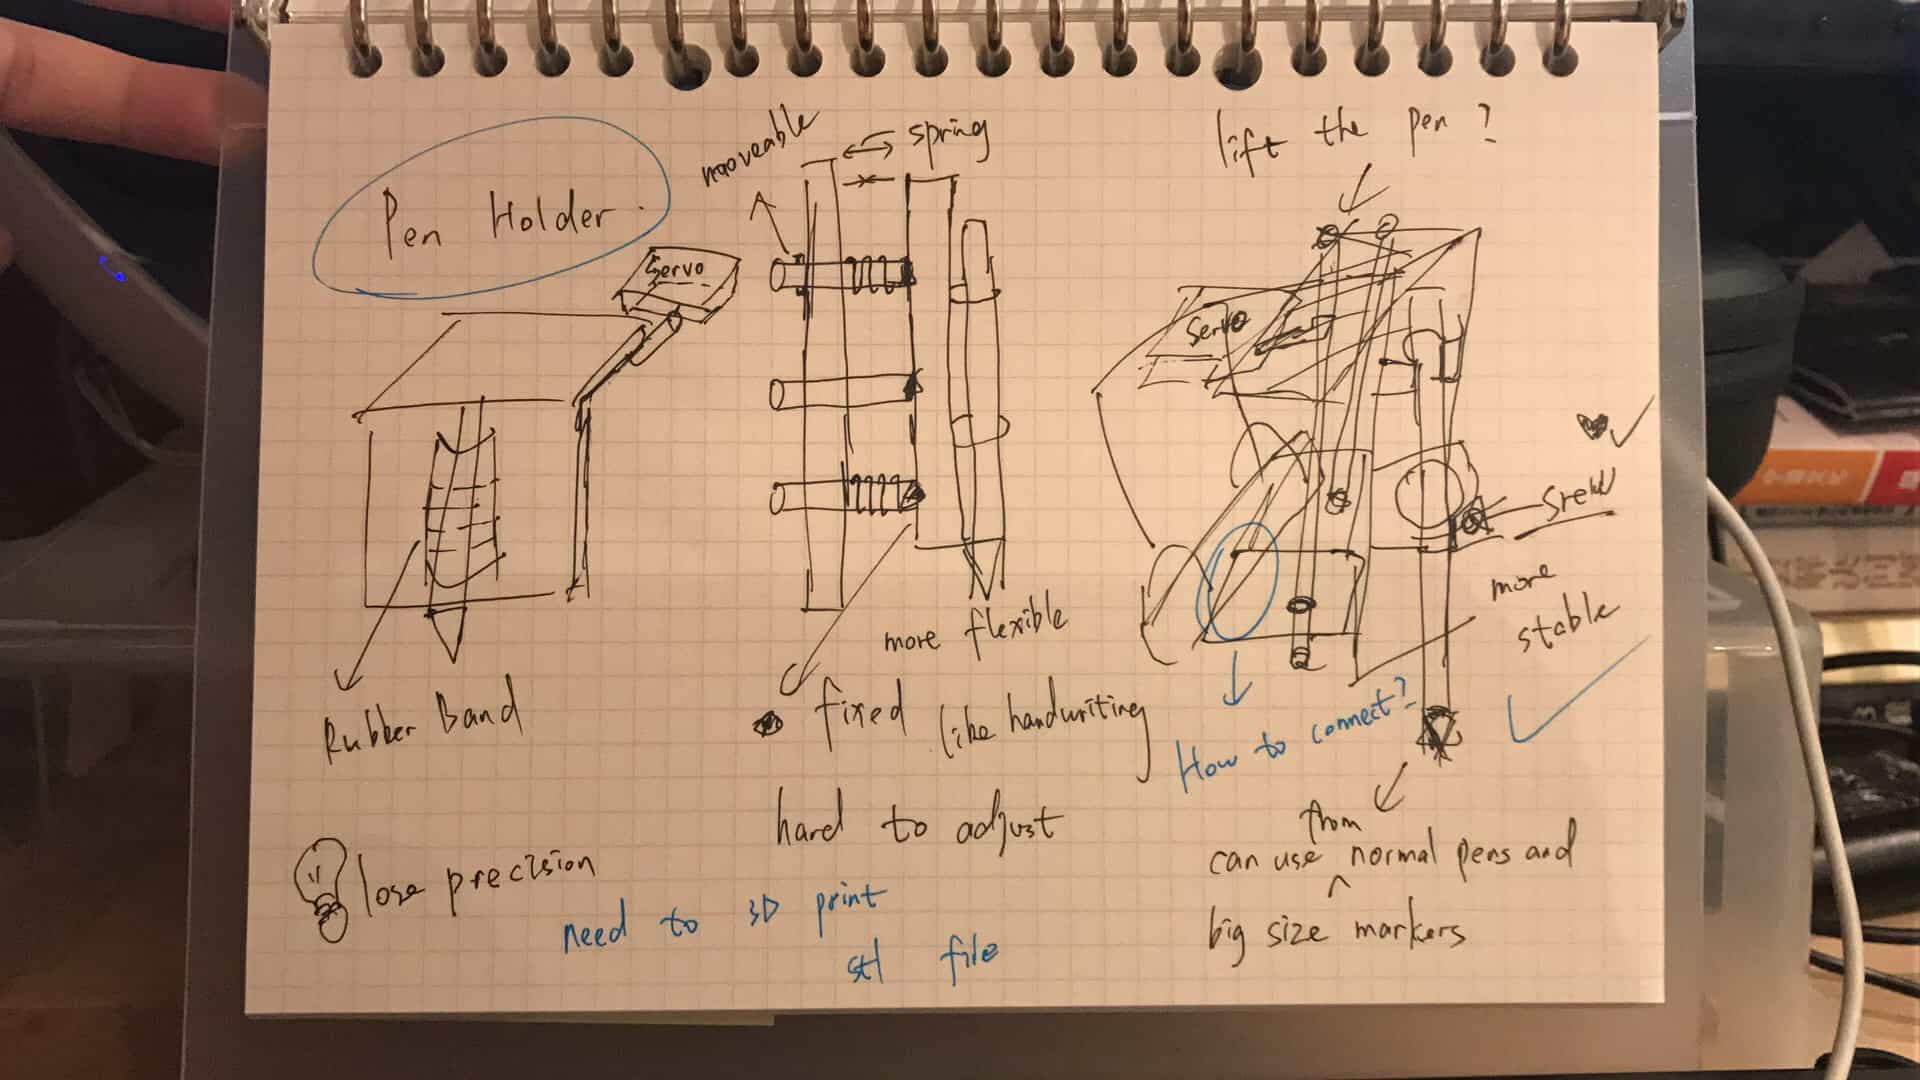 Pen Holder.
Servo
Rubber Band
lose precision
need to 3D print
stl file
moveable
spring
more flexible
fixed
like handwriting
hard to adjust
lift the pen?
Servo
How to connect?
more
stable
from
can use normal pens and
big size markers